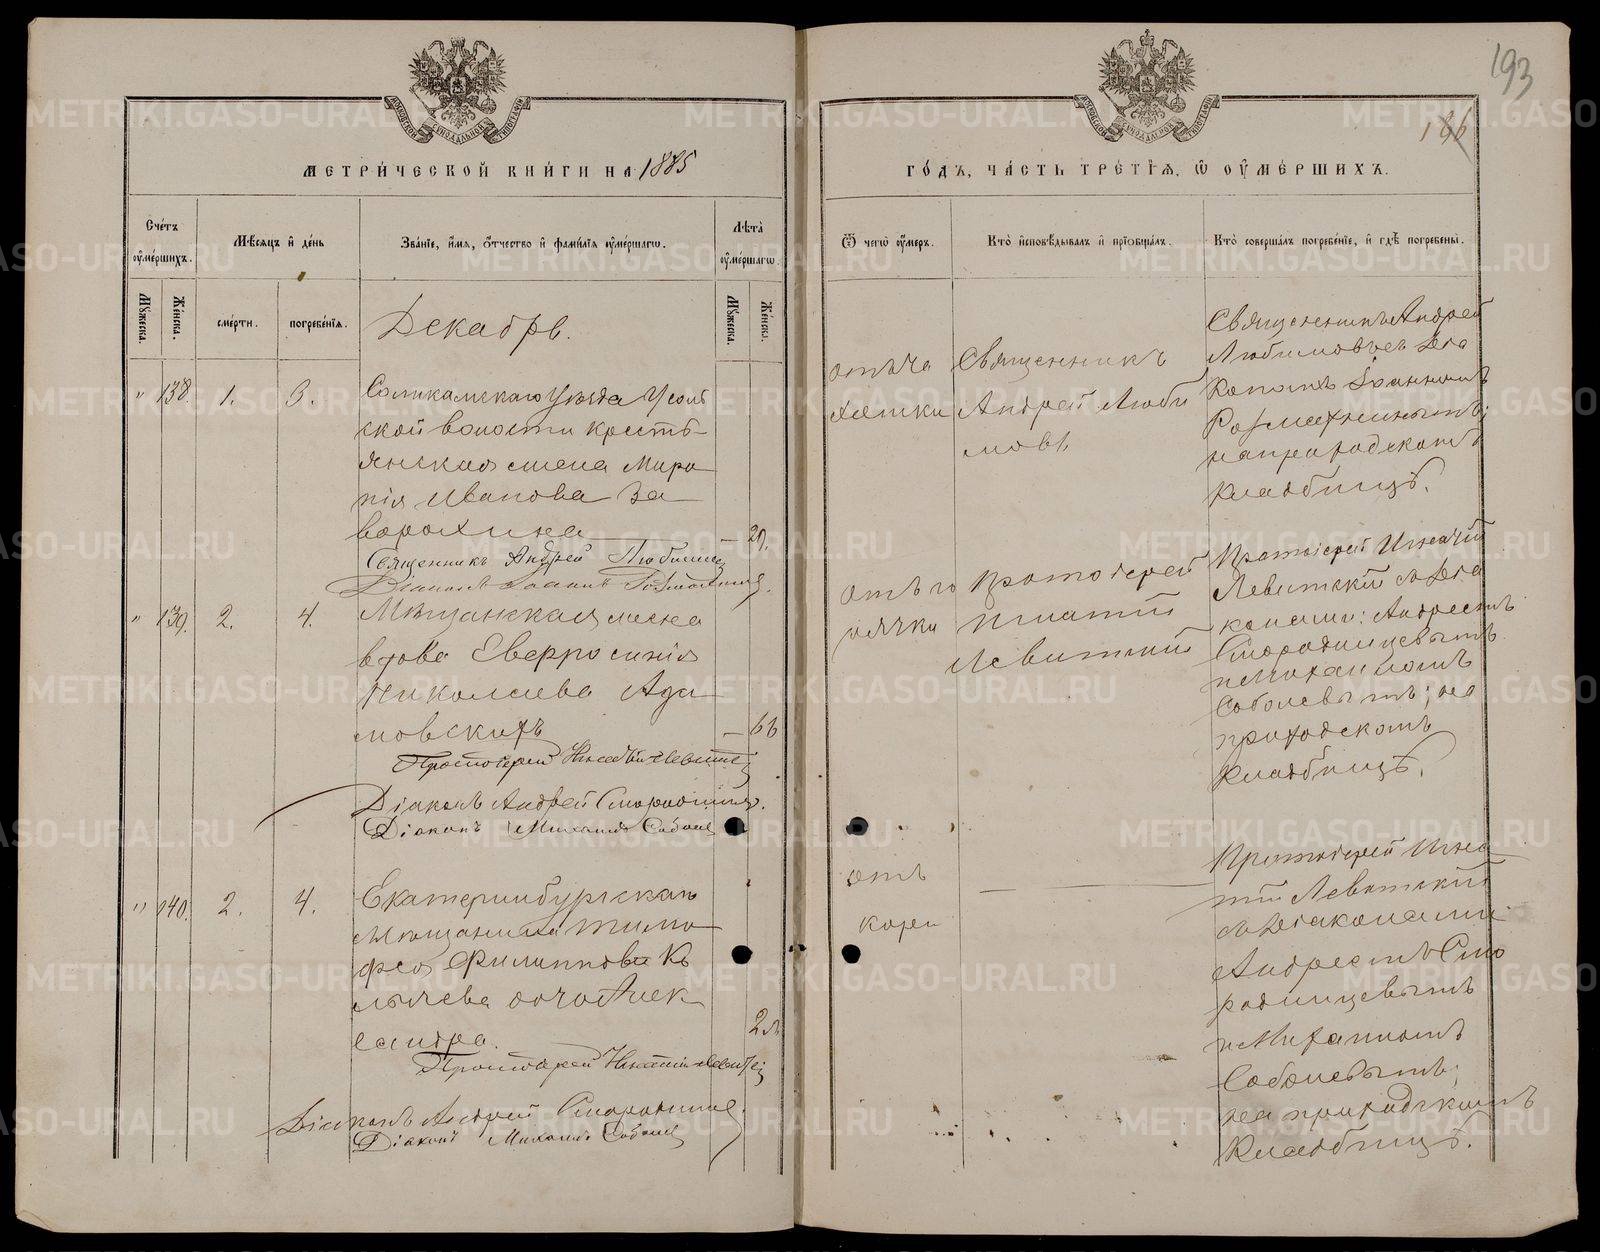 193
186
МЕТРИ́ЧЕСКОЙ КНИ́ГИ НА 1885
ГО́ДЪ, ЧА́СТЬ ТРЕ́ТІЯ, Ѡ ОУМЕ́РШИХЪ.
Сче́тъ оуме́ршихъ.
Мѣ́сяцъ и де́нь
Зва́ніе, и́мя, о́тчество и фами́лія оуме́ршагѡ.
Лѣ́та оуме́ршагѡ.
Ѿ чегѡ̀ оу́меръ.
Кто̀ исповѣ́дывалъ и пріѡбща́лъ.
Кто̀ соверша́лъ погребе́ніе, и гдѣ̀ погребены̀.
Му́жеска.
Же́нска.
сме́рти.
погребе́нія.
Му́жеска.
Же́нска.
Декабрь.
" 138. 1. 3.
Соликамскаго уѣзда Усоль
ской волости кресть
янская жена Миро
пія Иванова За
ворохина
— 29.
Священникъ Андрей Любимовъ
Діаконъ Іоаннъ
Священникъ
Андрей Люби
мовъ
Священникъ Андрей
Любимовъ съ діа
кономъ Іоанномъ
на приходскомъ
кладбищѣ.
" 139. 2. 4.
Мѣщанская жена
вдова Евфросинія
Николаева Ада
мовскихъ
— 66
Протоіерей Игнатій Левитскій
Діаконъ Андрей Смородинцевъ.
Діаконъ Михаилъ Соболевъ
Протоіерей
Игнатій
Левитскій
Протоіерей Игнатій
Левитскій съ діа
конами: Андреемъ
Смородинцевымъ
и Михаиломъ
Соболевымъ; на
приходскомъ
кладбищѣ.
" 140. 2. 4.
Екатеринбургскаго
мѣщанина Тимо
фея Филиппова К
лычева дочь Алек
сандра.
2 л.
Протоіерей Игнатій Левитскій
Діаконъ Андрей Смородинцевъ.
Діаконъ Михаилъ Соболевъ
отъ
кори
Протоіерей Игна
тій Левитскій
съ діаконами
Андреемъ Смо
родинцевымъ
и Михаиломъ
Соболевымъ;
на приходскомъ
кладбищѣ.
METRIKI.GASO-URAL.RU